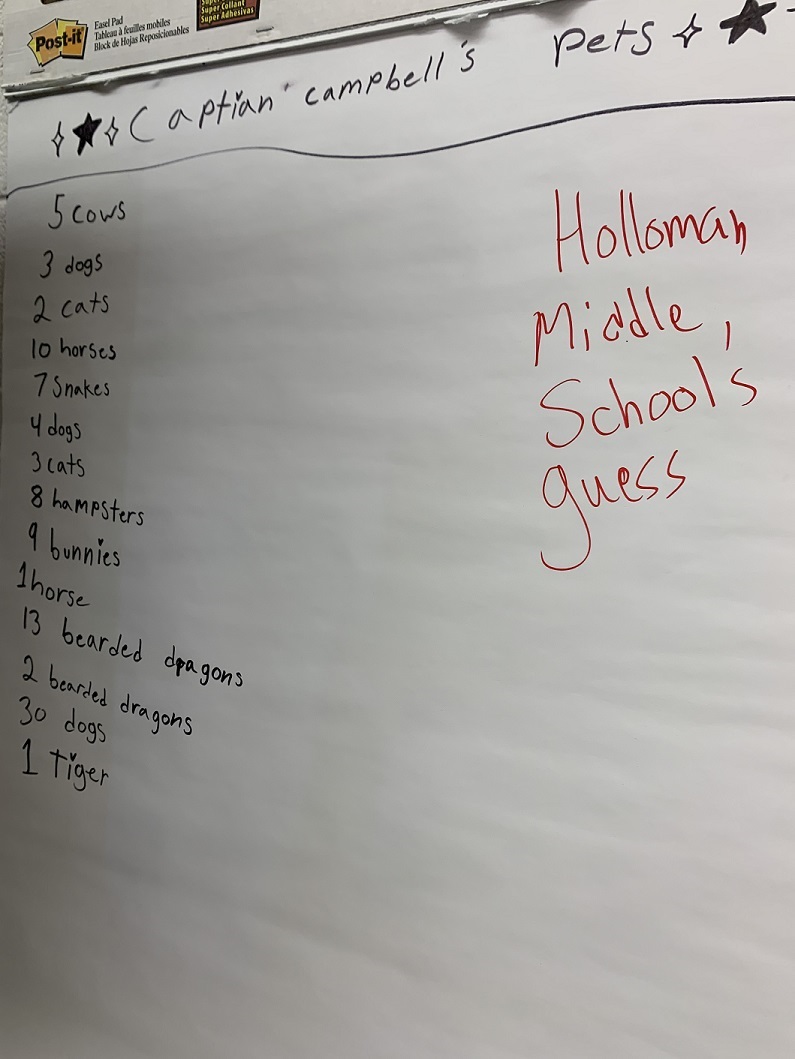 Super Collant
Super Adhesivas
Post-it
Easel Pad
Tableau à feuilles mobiles
Block de Hojas Reposicionables
Captian campbell's pets
5 cows
3 dogs
2 cats
10 horses
7 Snakes
4 dogs
3 cats
8 hampsters
9 bunnies
1 horse
13 bearded dragons
2 bearded dragons
30 dogs
1 Tiger
Holloman
Middle,
School's
guess